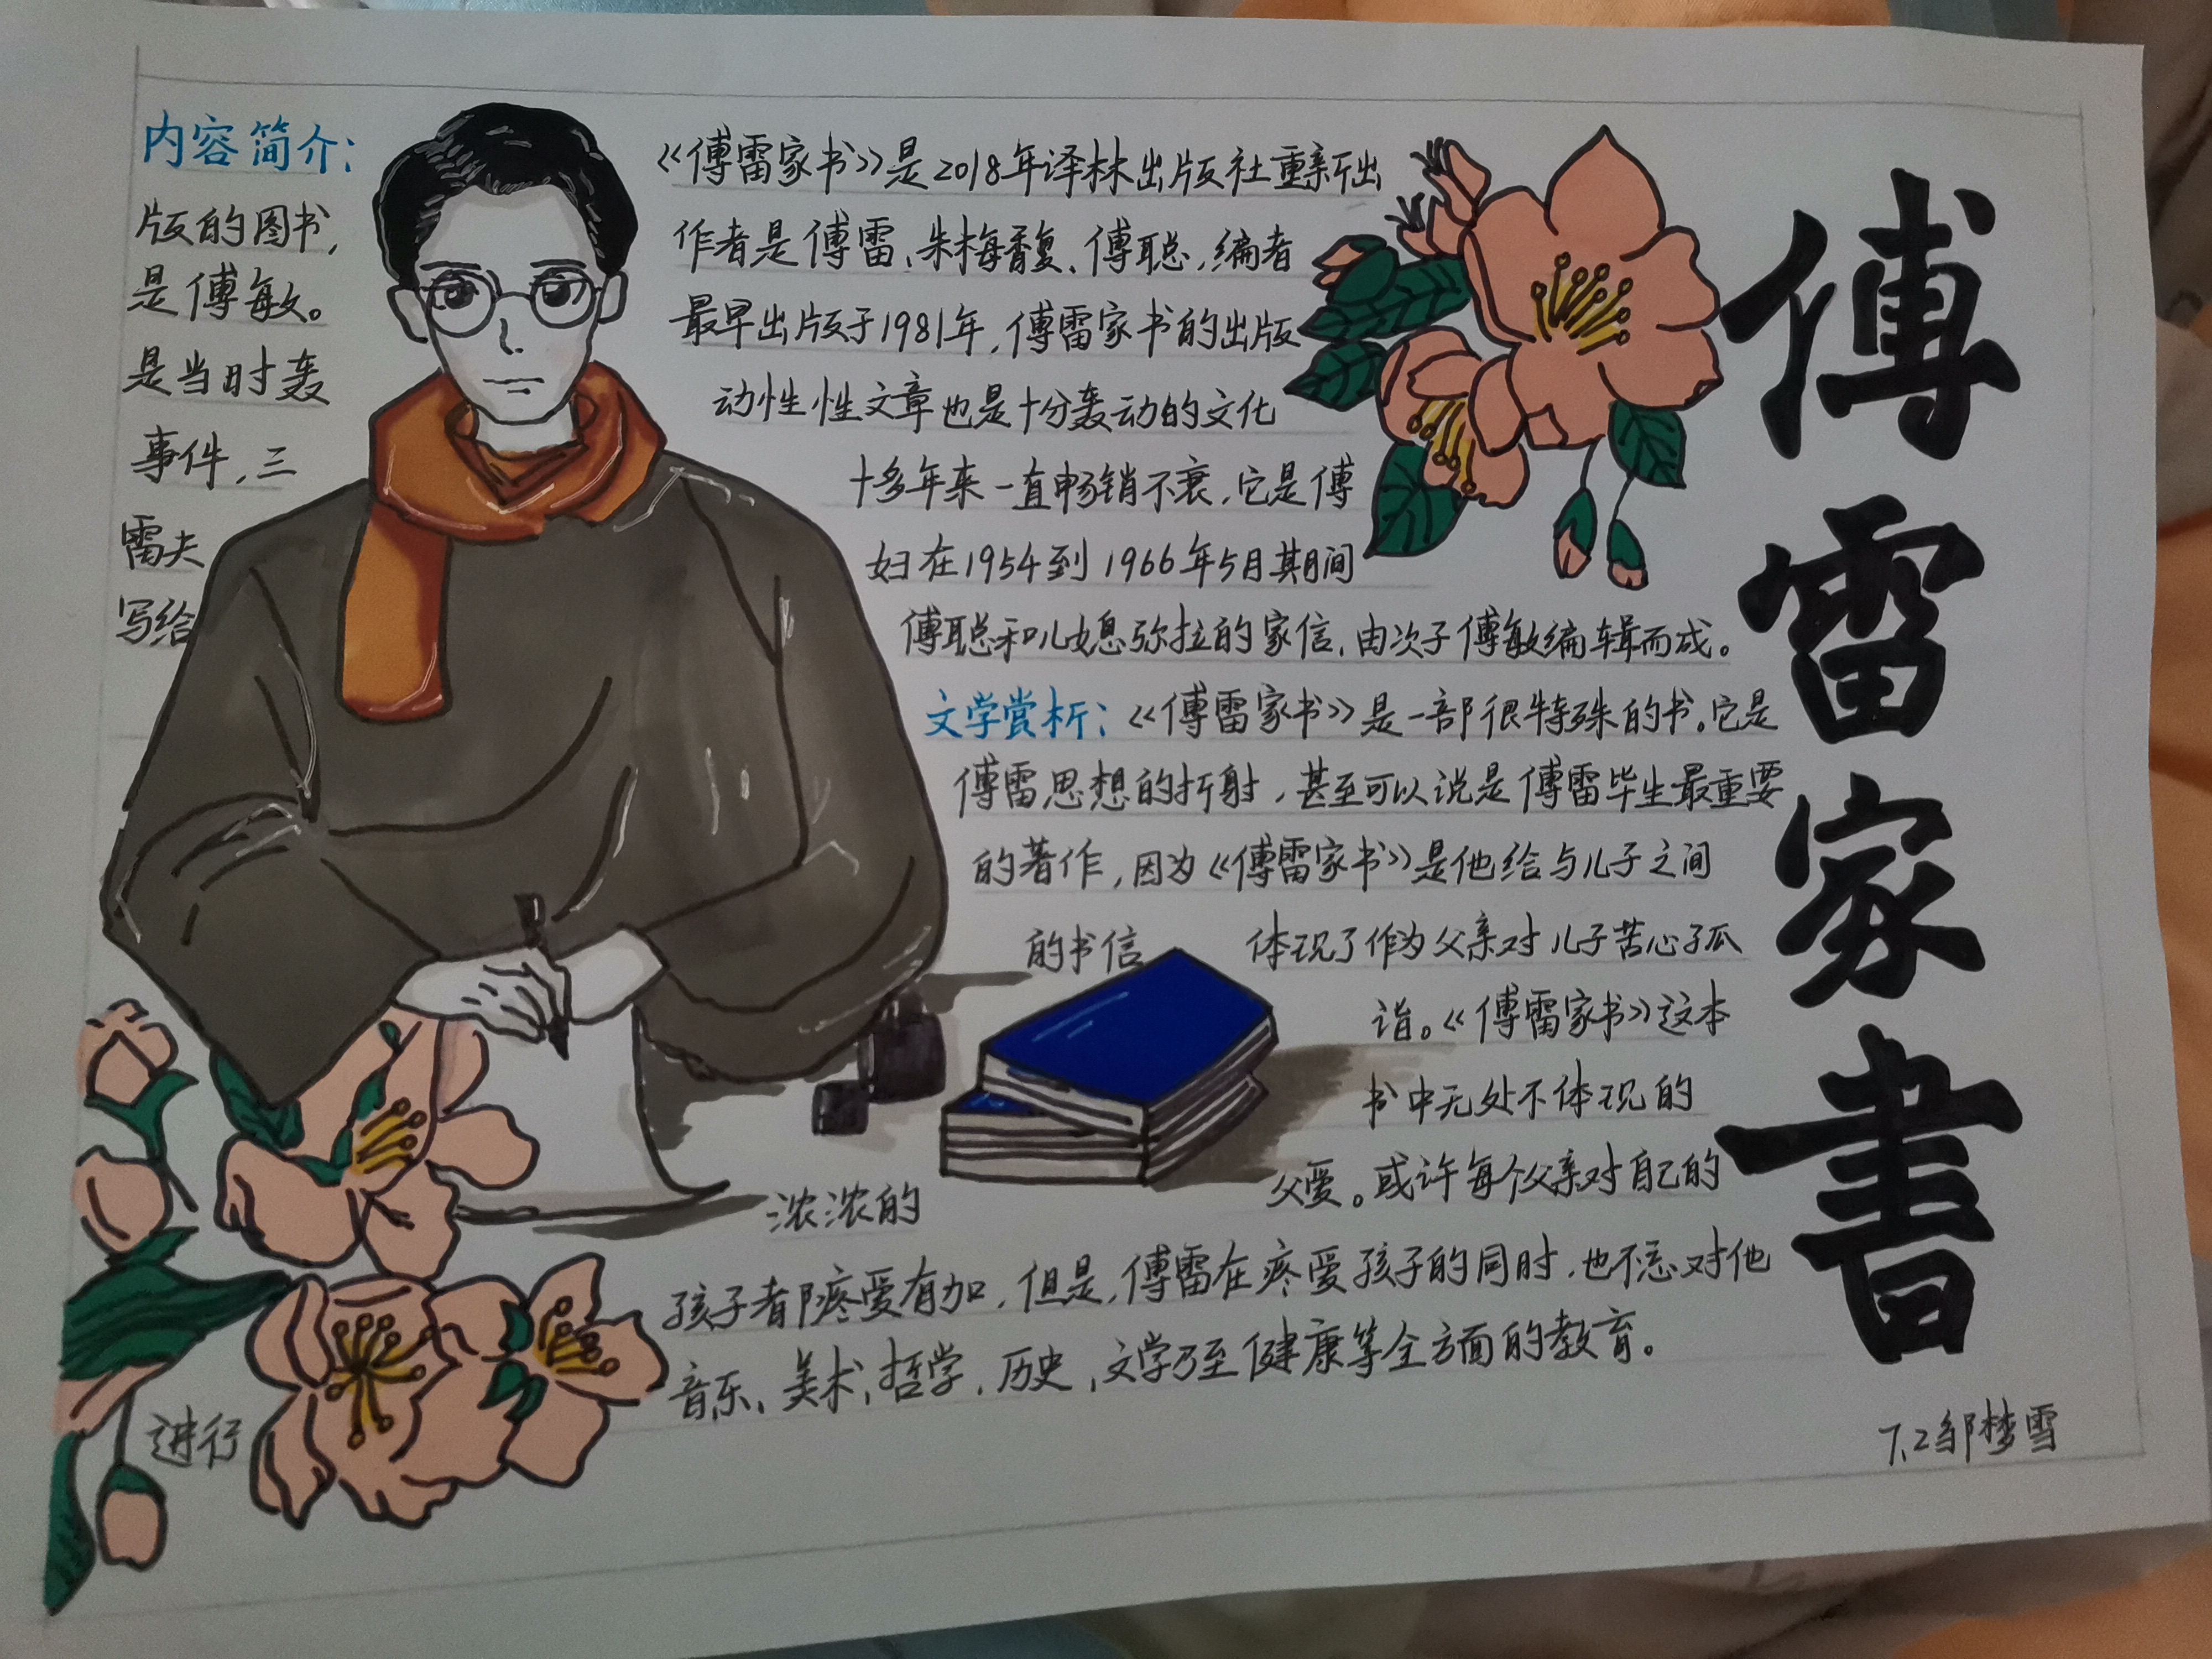 内容简介：《傅雷家书》是2018年译林出版社重新出
版的图书，作者是傅雷、朱梅馥、傅聪，编者
是傅敏。最早出版于1981年，傅雷家书的出版
是当时轰动性性文章也是十分轰动的文化
事件，三十多年来一直畅销不衰，它是傅
雷夫妇在1954到1966年5月期间
写给傅聪和儿媳弥拉的家信，由次子傅敏编辑而成。
文学赏析：《傅雷家书》是一部很特殊的书。它是
傅雷思想的折射，甚至可以说是傅雷毕生最重要
的著作，因为《傅雷家书》是他给与儿子之间
的书信 体现了作为父亲对儿子苦心孤
诣。《傅雷家书》这本
书中无处不体现的
浓浓的父爱。或许每个父亲对自己的
孩子都疼爱有加，但是，傅雷在疼爱孩子的同时，也不忘对他
进行音乐、美术，哲学，历史，文学乃至健康等全方面的教育。
傅雷家書
7.2邹梦雪